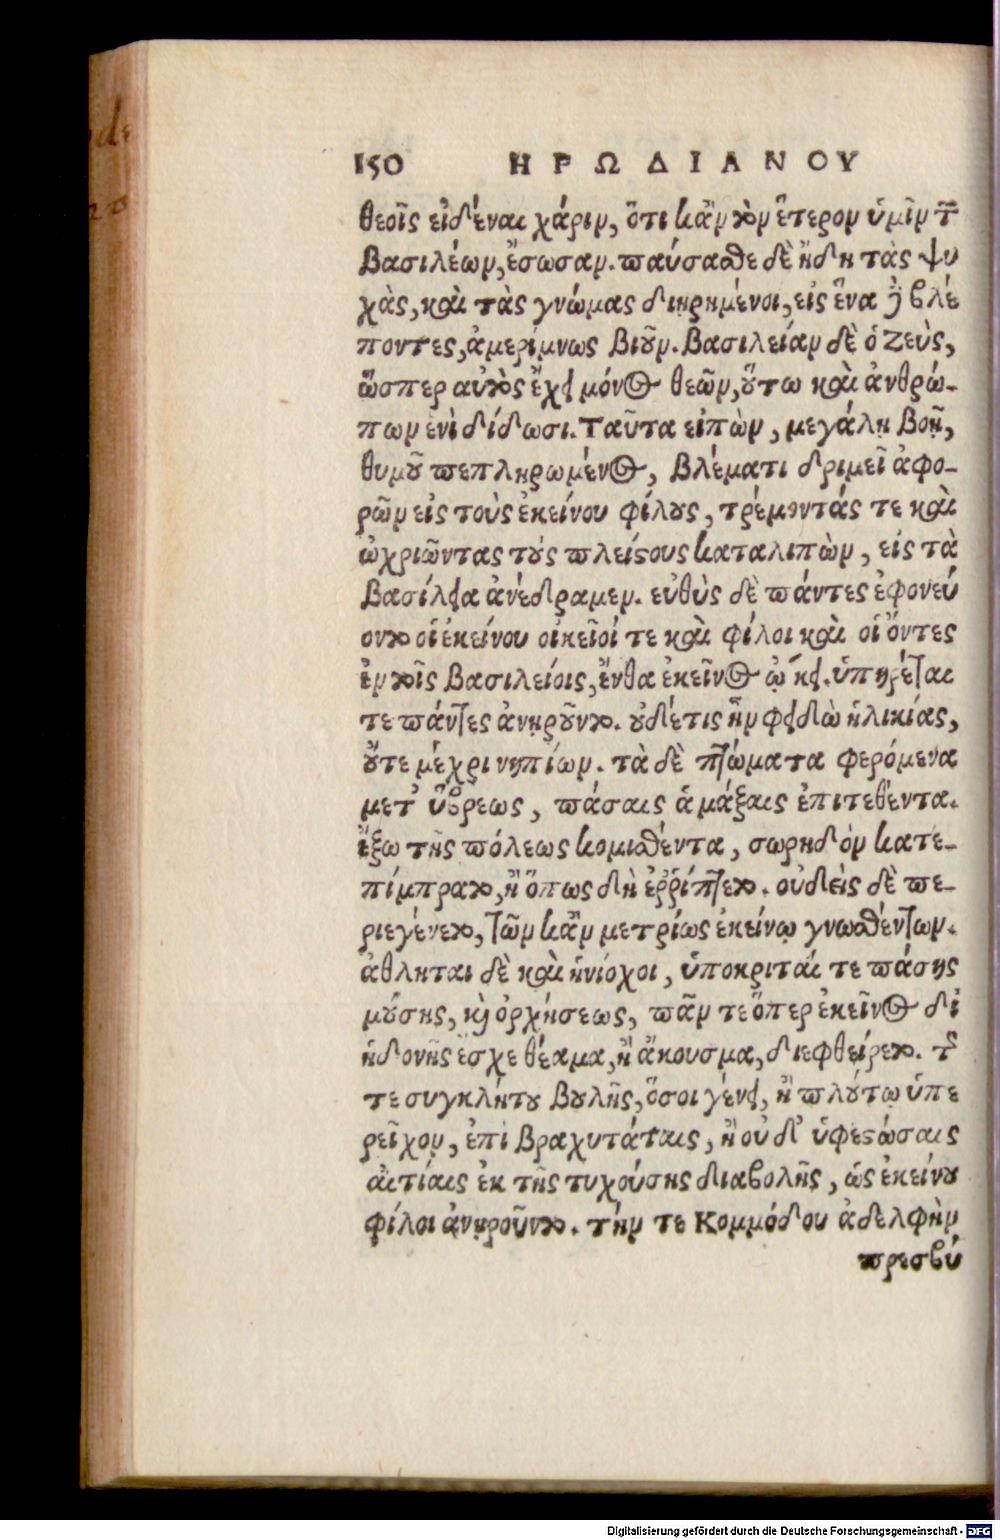 150 ΗΡΩΔΙΑΝΟΥ
θεοῖς εἰδέναι χάριν, ὅτι κἂν τὸν ἕτερον ὑμῖν τῶν
βασιλέων, ἔσωσαν. παύσασθε δὲ ἤδη τὰς ψυ
χὰς, καὶ τὰς γνώμας διῃρημένοι, εἰς ἕνα δὲ βλέ
ποντες, ἀμερίμνως βιοῦν. βασιλείαν δὲ ὁ Ζεὺς,
ὥσπερ αὐτὸς ἔχει μόνος θεῶν, οὕτω καὶ ἀνθρώ-
πων ἑνὶ δίδωσι. Ταῦτα εἰπὼν, μεγάλῃ βοῇ,
θυμοῦ πεπληρωμένος, βλέματι δριμεῖ ἀφο-
ρῶν εἰς τοὺς ἐκείνου φίλους, τρέμοντάς τε καὶ
ὠχριῶντας τοὺς πλείστους καταλιπὼν, εἰς τὰ
βασίλεια ἀνέδραμεν. εὐθὺς δὲ πάντες ἐφονεύ
οντο οἱ ἐκείνου οἰκεῖοί τε καὶ φίλοι καὶ οἱ ὄντες
ἐν τοῖς βασιλείοις, ἔνθα ἐκεῖνος ᾤκει. ὑπηρέται
τε πάντες ἀνῃροῦντο. οὐδέ τις ἦν φειδὼ ἡλικίας,
οὔτε μέχρι νηπίων. τὰ δὲ πτώματα φερόμενα
μετ' ὕβρεως, πάσαις ἁμάξαις ἐπιτεθέντα.
ἔξω τῆς πόλεως κομισθέντα, σωρηδὸν κατε-
πίμπρατο, ἢ ὅπως δὴ ἐῤῥίπτετο. οὐδεὶς δὲ πε-
ριεγένετο, τῶν κἂν μετρίως ἐκείνῳ γνωσθέντων.
ἀθληταὶ δὲ καὶ ἡνίοχοι, ὑποκριταί τε πάσης
μούσης, καὶ ὀρχήσεως, πᾶν τε ὅπερ ἐκεῖνος δι'
ἡδονῆς ἔσχε θέαμα, ἢ ἄκουσμα, διεφθείρετο. τῆς
τε συγκλήτου βουλῆς, ὅσοι γένει, ἢ πλούτῳ ὑπε
ρεῖχον, ἐπὶ βραχυτάταις, ἢ οὐδ' ὑφεστώσαις
αἰτίαις ἐκ τῆς τυχούσης διαβολῆς, ὡς ἐκείνου
φίλοι ἀνῃροῦντο. τήν τε Κομμόδου ἀδελφὴν
πρεσβύ
Digitalisierung gefördert durch die Deutsche Forschungsgemeinschaft - DFG